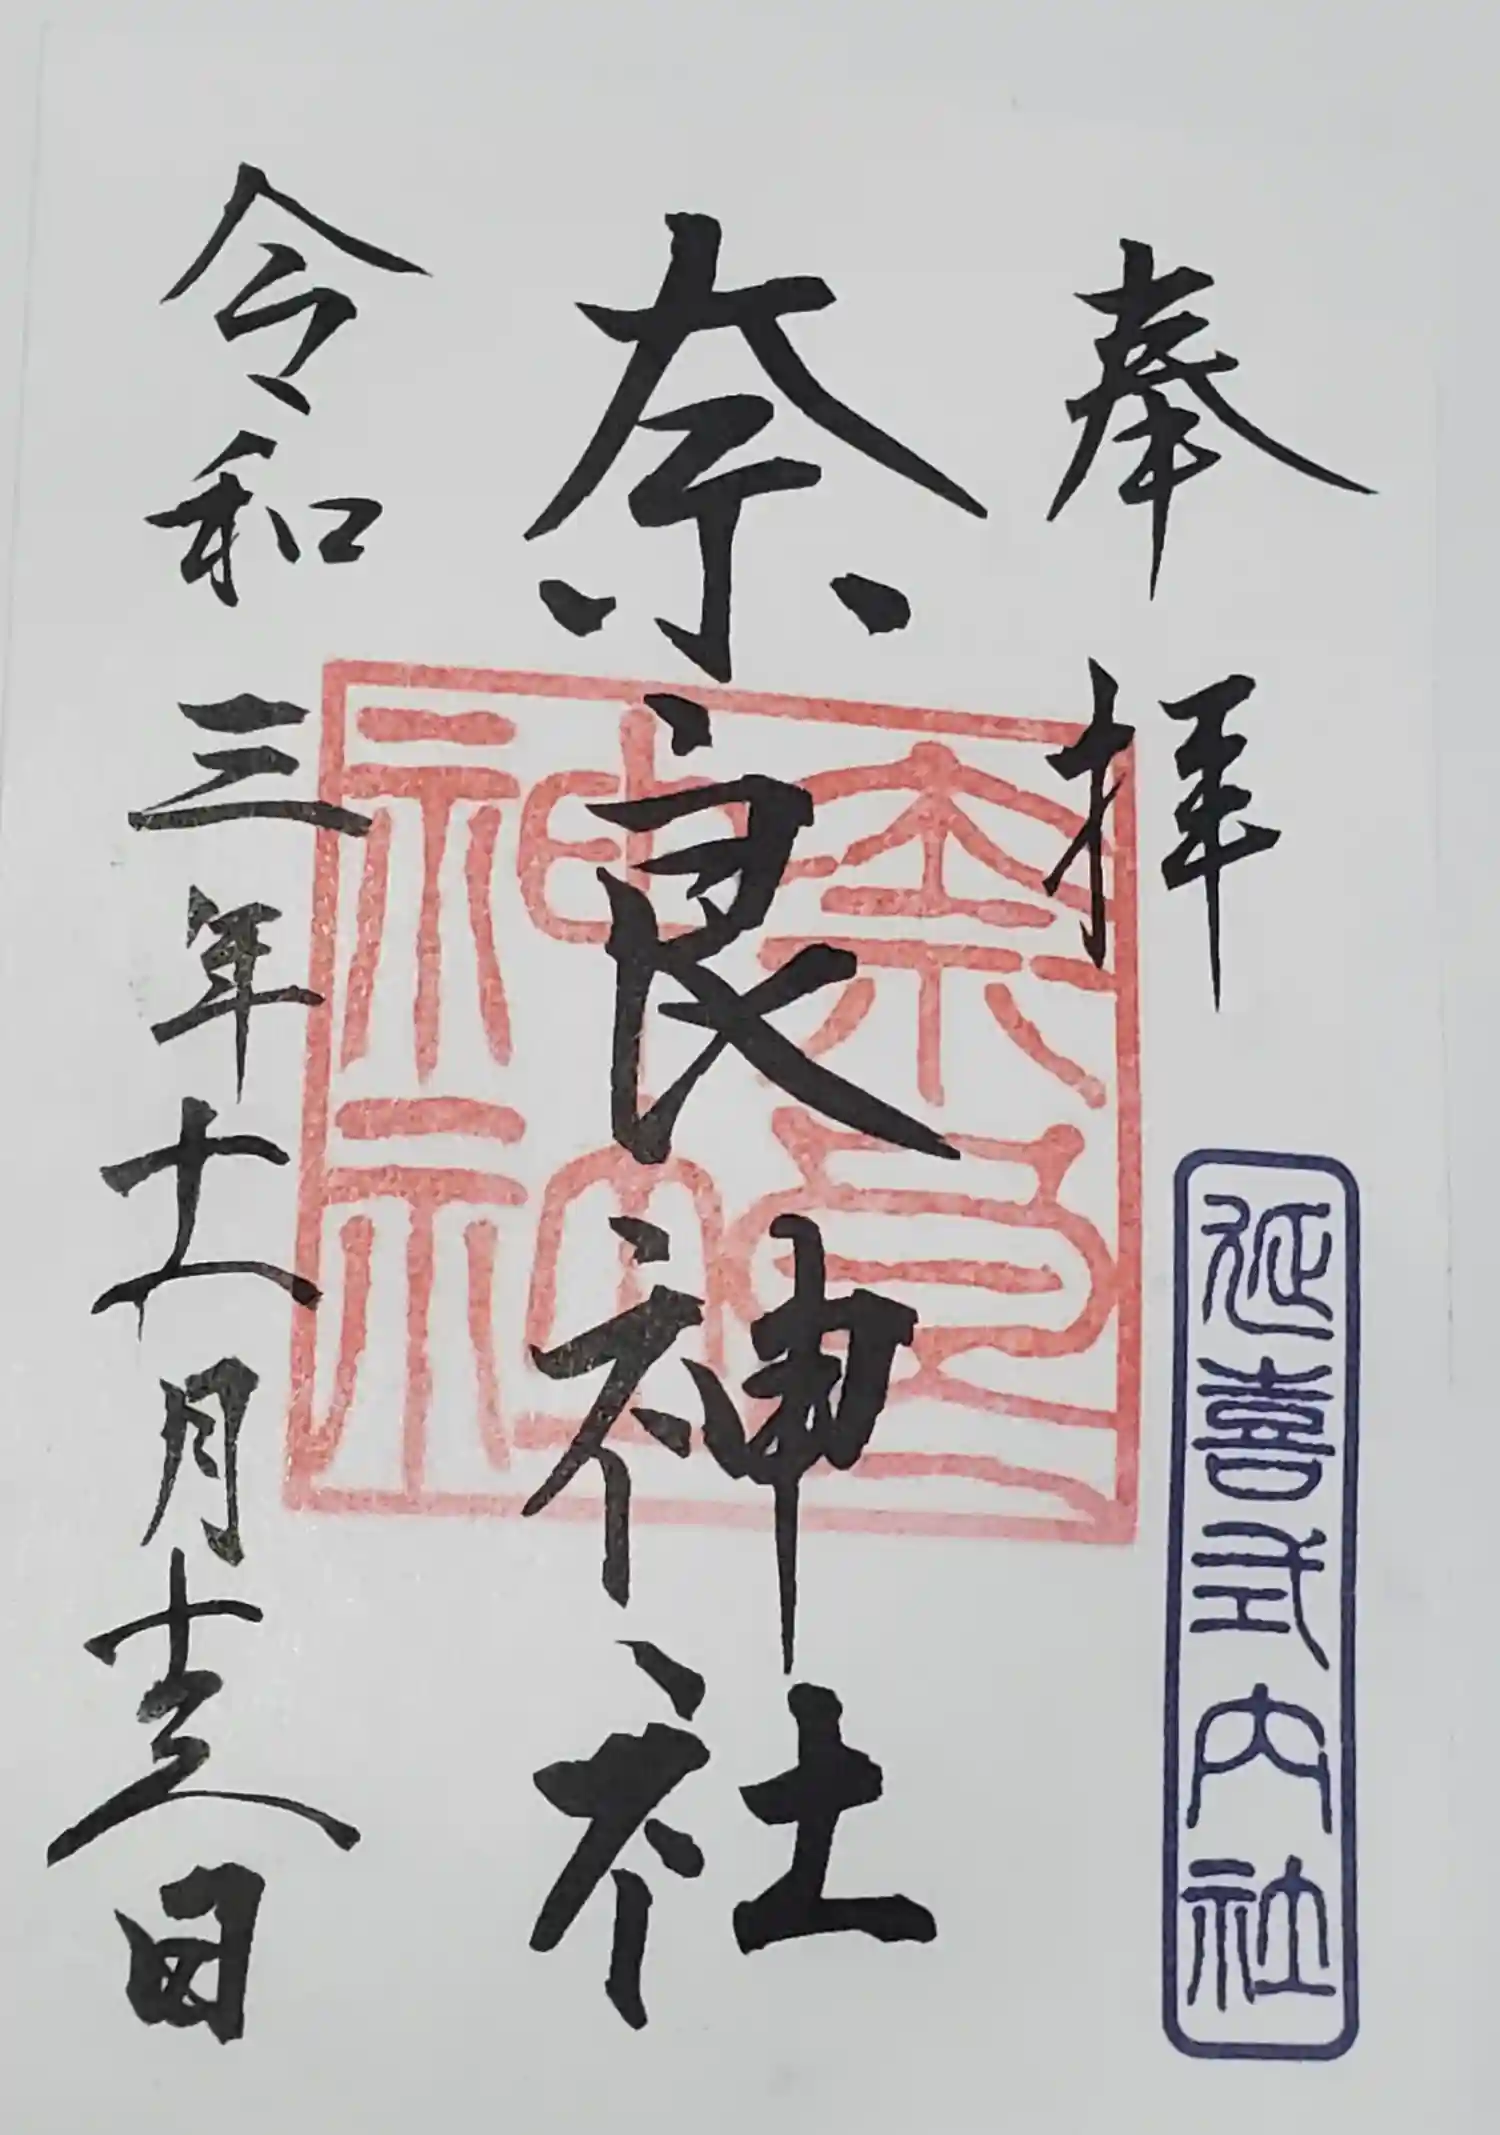 奉拝
延喜式内社
奈良神社
奈良
神社
令和三年十一月十五日